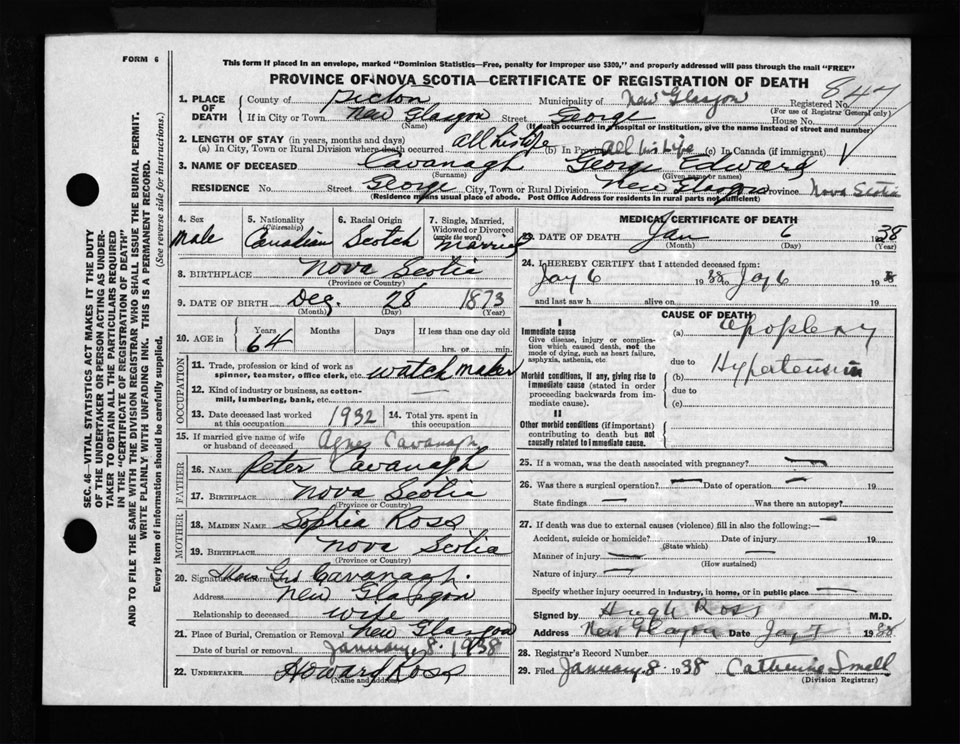 FORM 6
This form if placed in an envelope, marked "Dominion Statistics—Free, penalty for improper use $300," and properly addressed will pass through the mail "FREE"
PROVINCE OF NOVA SCOTIA—CERTIFICATE OF REGISTRATION OF DEATH
847
1. PLACE OF DEATH County of Pictou Municipality of New Glasgow Registered No.
(For use of Registrar General only)
If in City or Town New Glasgow Street George House No.
(Name) (If death occurred in a hospital or institution, give the name instead of street and number)
2. LENGTH OF STAY (in years, months and days)
(a) In City, Town or Rural Division where death occurred all his life (b) In Province All his life (c) In Canada (if immigrant)
3. NAME OF DECEASED Cavanagh George Edward
(Surname) (Given name or names)
RESIDENCE No. Street George City, Town or Rural Division New Glasgow Province Nova Scotia
(Residence means usual place of abode. Post Office Address for residents in rural parts not sufficient)
4. Sex Male
5. Nationality (Citizenship) Canadian
6. Racial Origin Scotch
7. Single, Married, Widowed or Divorced (write the word) Married
8. BIRTHPLACE Nova Scotia
(Province or Country)
9. DATE OF BIRTH Dec. 28 1873
(Month) (Day) (Year)
10. AGE in Years 64 Months Days If less than one day old
hrs. or min.
OCCUPATION
11. Trade, profession or kind of work as spinner, teamster, office clerk, etc. Watch maker
12. Kind of industry or business, as cotton-mill, lumbering, bank, etc. —
13. Date deceased last worked at this occupation 1932
14. Total yrs. spent in this occupation
15. If married give name of wife or husband of deceased Agnes Cavanagh
FATHER
16. NAME Peter Cavanagh
17. BIRTHPLACE Nova Scotia
(Province or Country)
MOTHER
18. MAIDEN NAME Sophia Ross
19. BIRTHPLACE Nova Scotia
(Province or Country)
20. Signature of informant Mrs Geo Cavanagh.
Address New Glasgow
Relationship to deceased wife
21. Place of Burial, Cremation or Removal New Glasgow
Date of burial or removal January 8 1938
22. UNDERTAKER Howard Ross
(Name and address)
MEDICAL CERTIFICATE OF DEATH
23. DATE OF DEATH Jan 6 1938
(Month) (Day) (Year)
24. I HEREBY CERTIFY that I attended deceased from:
Jay 6 1938 to Jay 6 193
and last saw h alive on 19
CAUSE OF DEATH
I
Immediate cause
Give disease, injury or complication which caused death, not the mode of dying, such as heart failure, asphyxia, asthenia, etc.
(a) Apoplexy
due to
Morbid conditions, if any, giving rise to immediate cause (stated in order proceeding backwards from immediate cause).
(b) Hypertension
due to
(c)
II
Other morbid conditions (if important) contributing to death but not causally related to immediate cause.
25. If a woman, was the death associated with pregnancy? —
26. Was there a surgical operation? — Date of operation — 19
State findings — Was there an autopsy?
27. If death was due to external causes (violence) fill in also the following:— —
Accident, suicide or homicide? Date of injury 19
(State which)
Manner of injury — —
(How sustained)
Nature of injury —
Specify whether injury occurred in industry, in home, or in public place —
Signed by Hugh Ross M.D.
Address New Glasgow Date Jay 7 1938
28. Registrar's Record Number
29. Filed January 8 1938 Catherine Smell
(Division Registrar)
SEC. 46—VITAL STATISTICS ACT MAKES IT THE DUTY
OF THE UNDERTAKER OR PERSON ACTING AS UNDER-
TAKER TO OBTAIN ALL THE PARTICULARS REQUIRED
IN THE "CERTIFICATE OF REGISTRATION OF DEATH"
AND TO FILE THE SAME WITH THE DIVISION REGISTRAR WHO SHALL ISSUE THE BURIAL PERMIT.
WRITE PLAINLY WITH UNFADING INK. THIS IS A PERMANENT RECORD.
Every item of information should be carefully supplied. (See reverse side for instructions.)